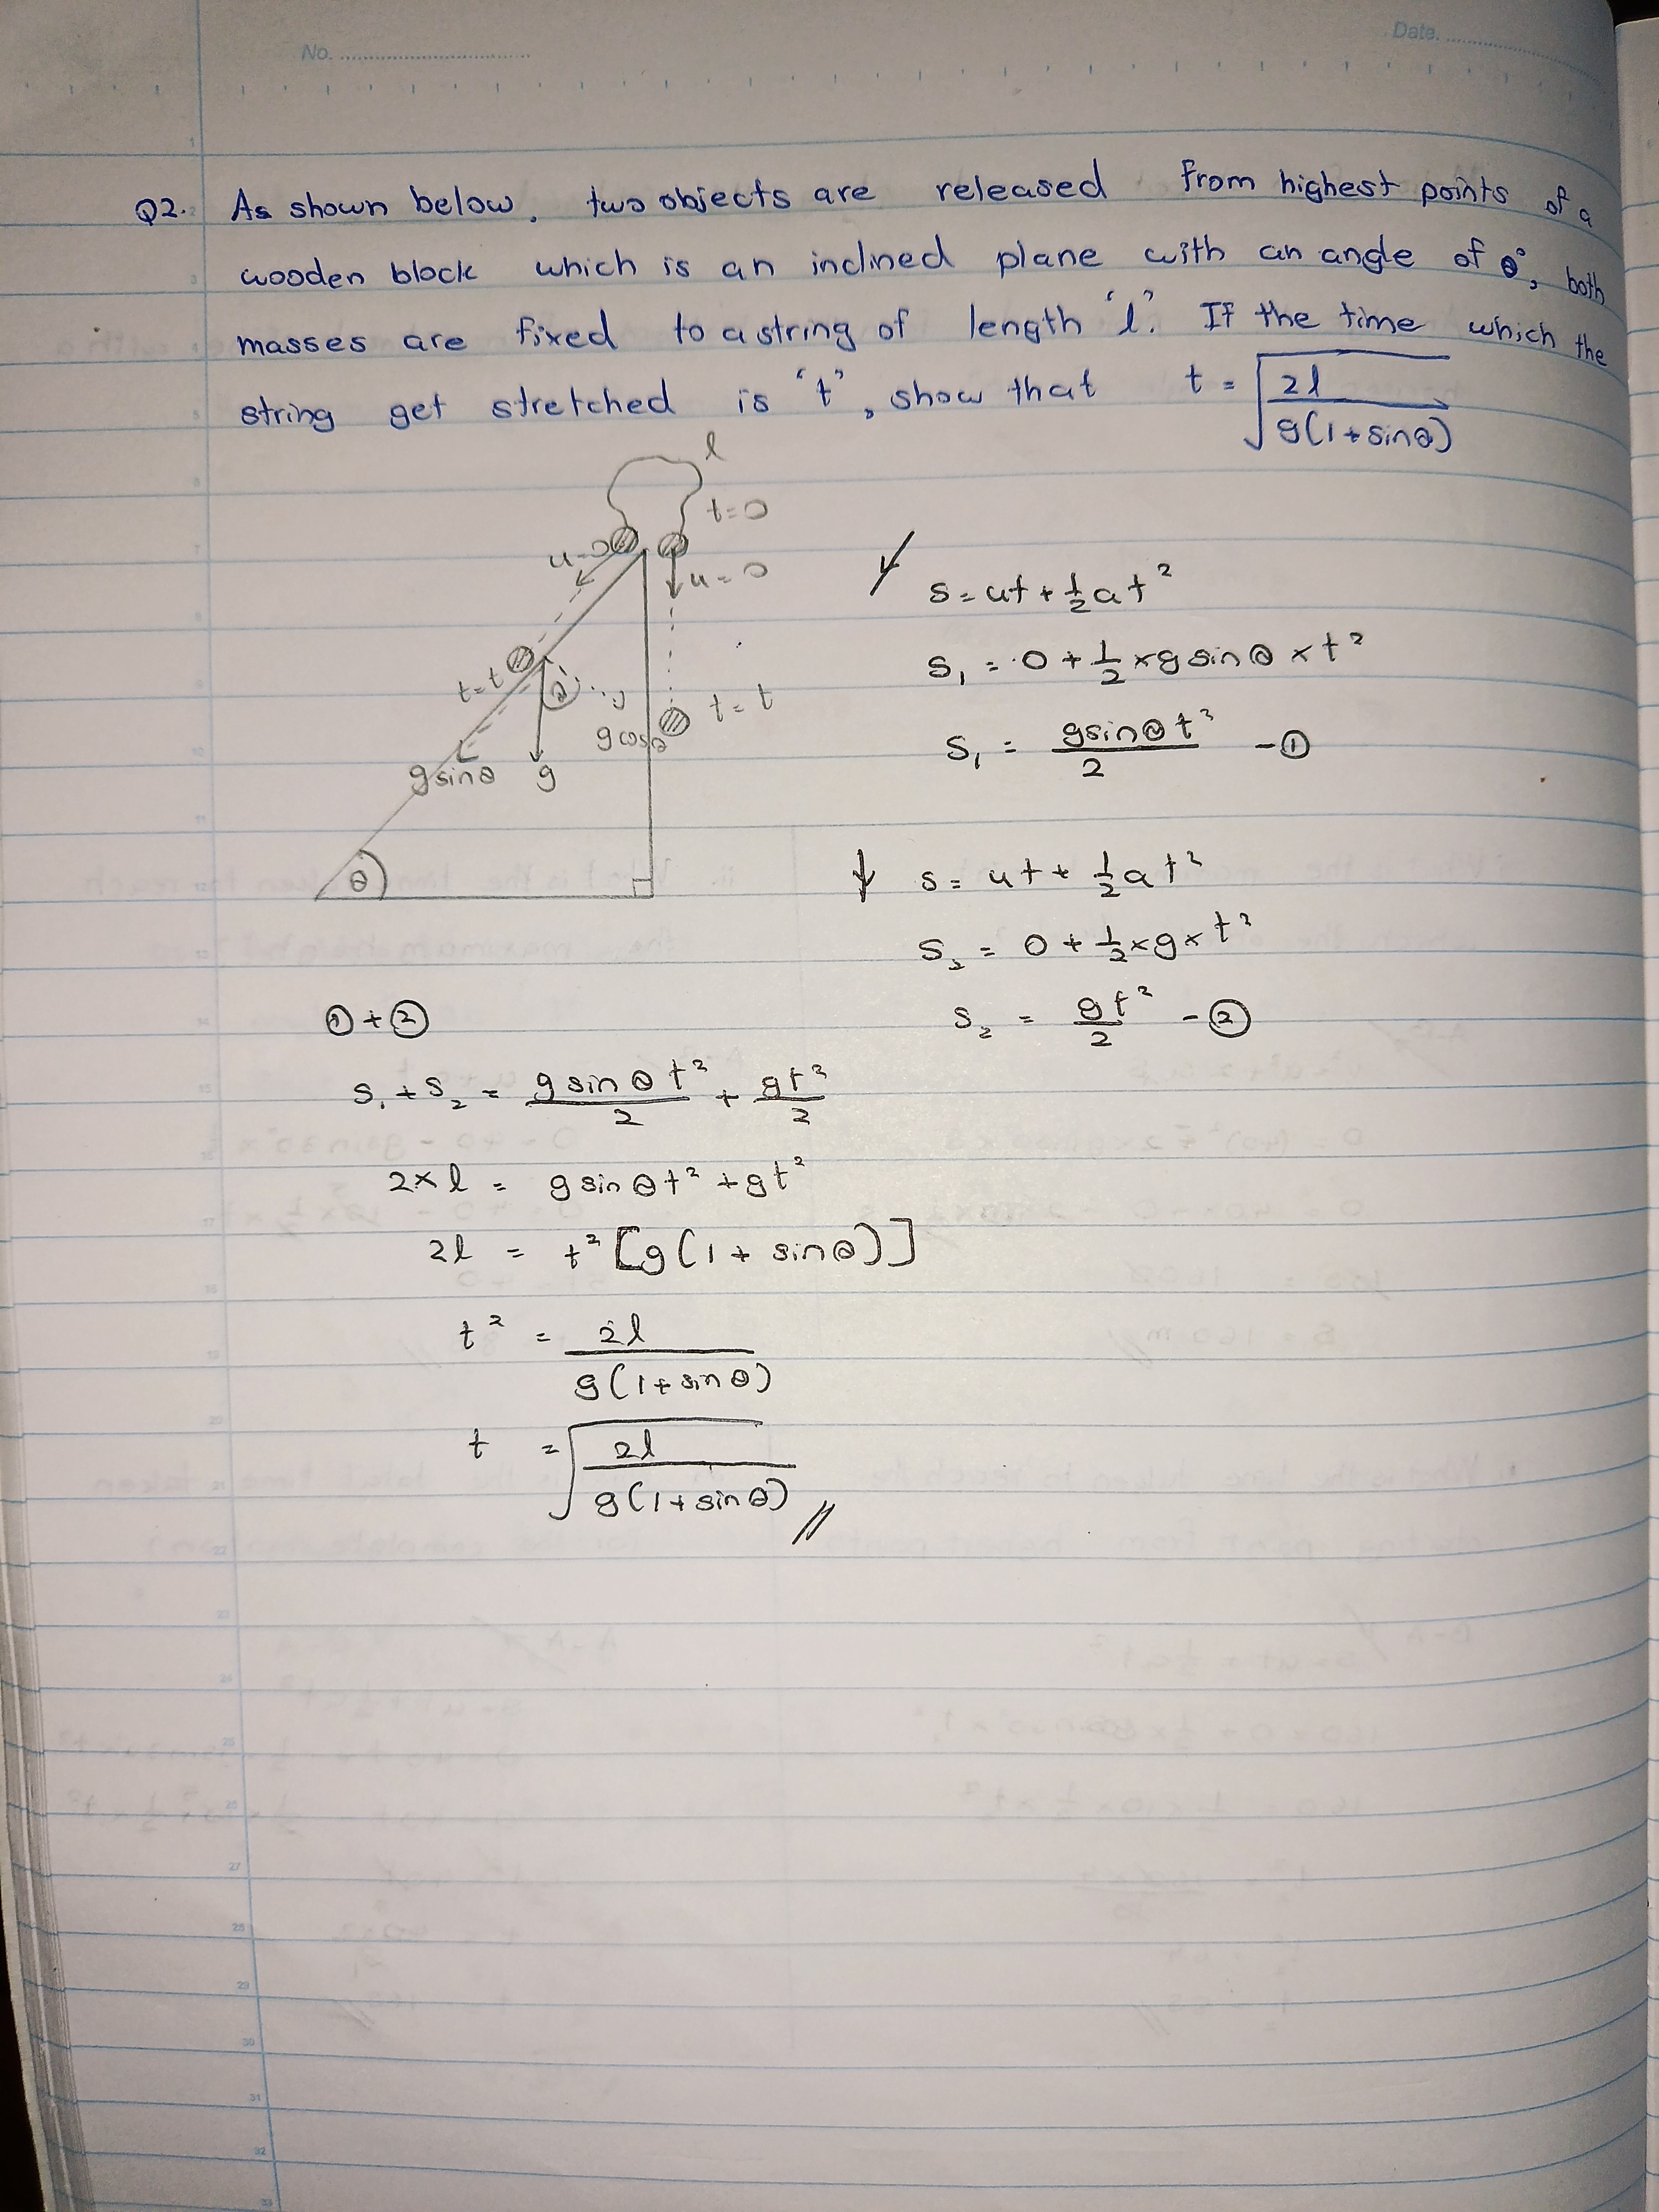 No.
Date.
Q2. As shown below, two objects are released from highest points of a
wooden block which is an inclined plane with an angle of θ°, both
masses are fixed to a string of length 'l'. If the time which the
string get stretched is 't', show that t = √(2l / g(1+sinθ))
l
t=0
u=0
u=0
t=t
θ
t=t
gcosθ
gsinθ g
θ
s = ut + ½at²
s₁ = 0 + ½ × g sinθ × t²
s₁ = gsinθt² / 2 - ①
↓ s = ut + ½at²
s₂ = 0 + ½ × g × t²
s₂ = gt² / 2 - ②
① + ②
s₁ + s₂ = g sinθt² / 2 + gt² / 2
2×l = g sinθt² + gt²
2l = t² [g(1 + sinθ)]
t² = 2l / g(1+sinθ)
t = √(2l / g(1+sinθ))